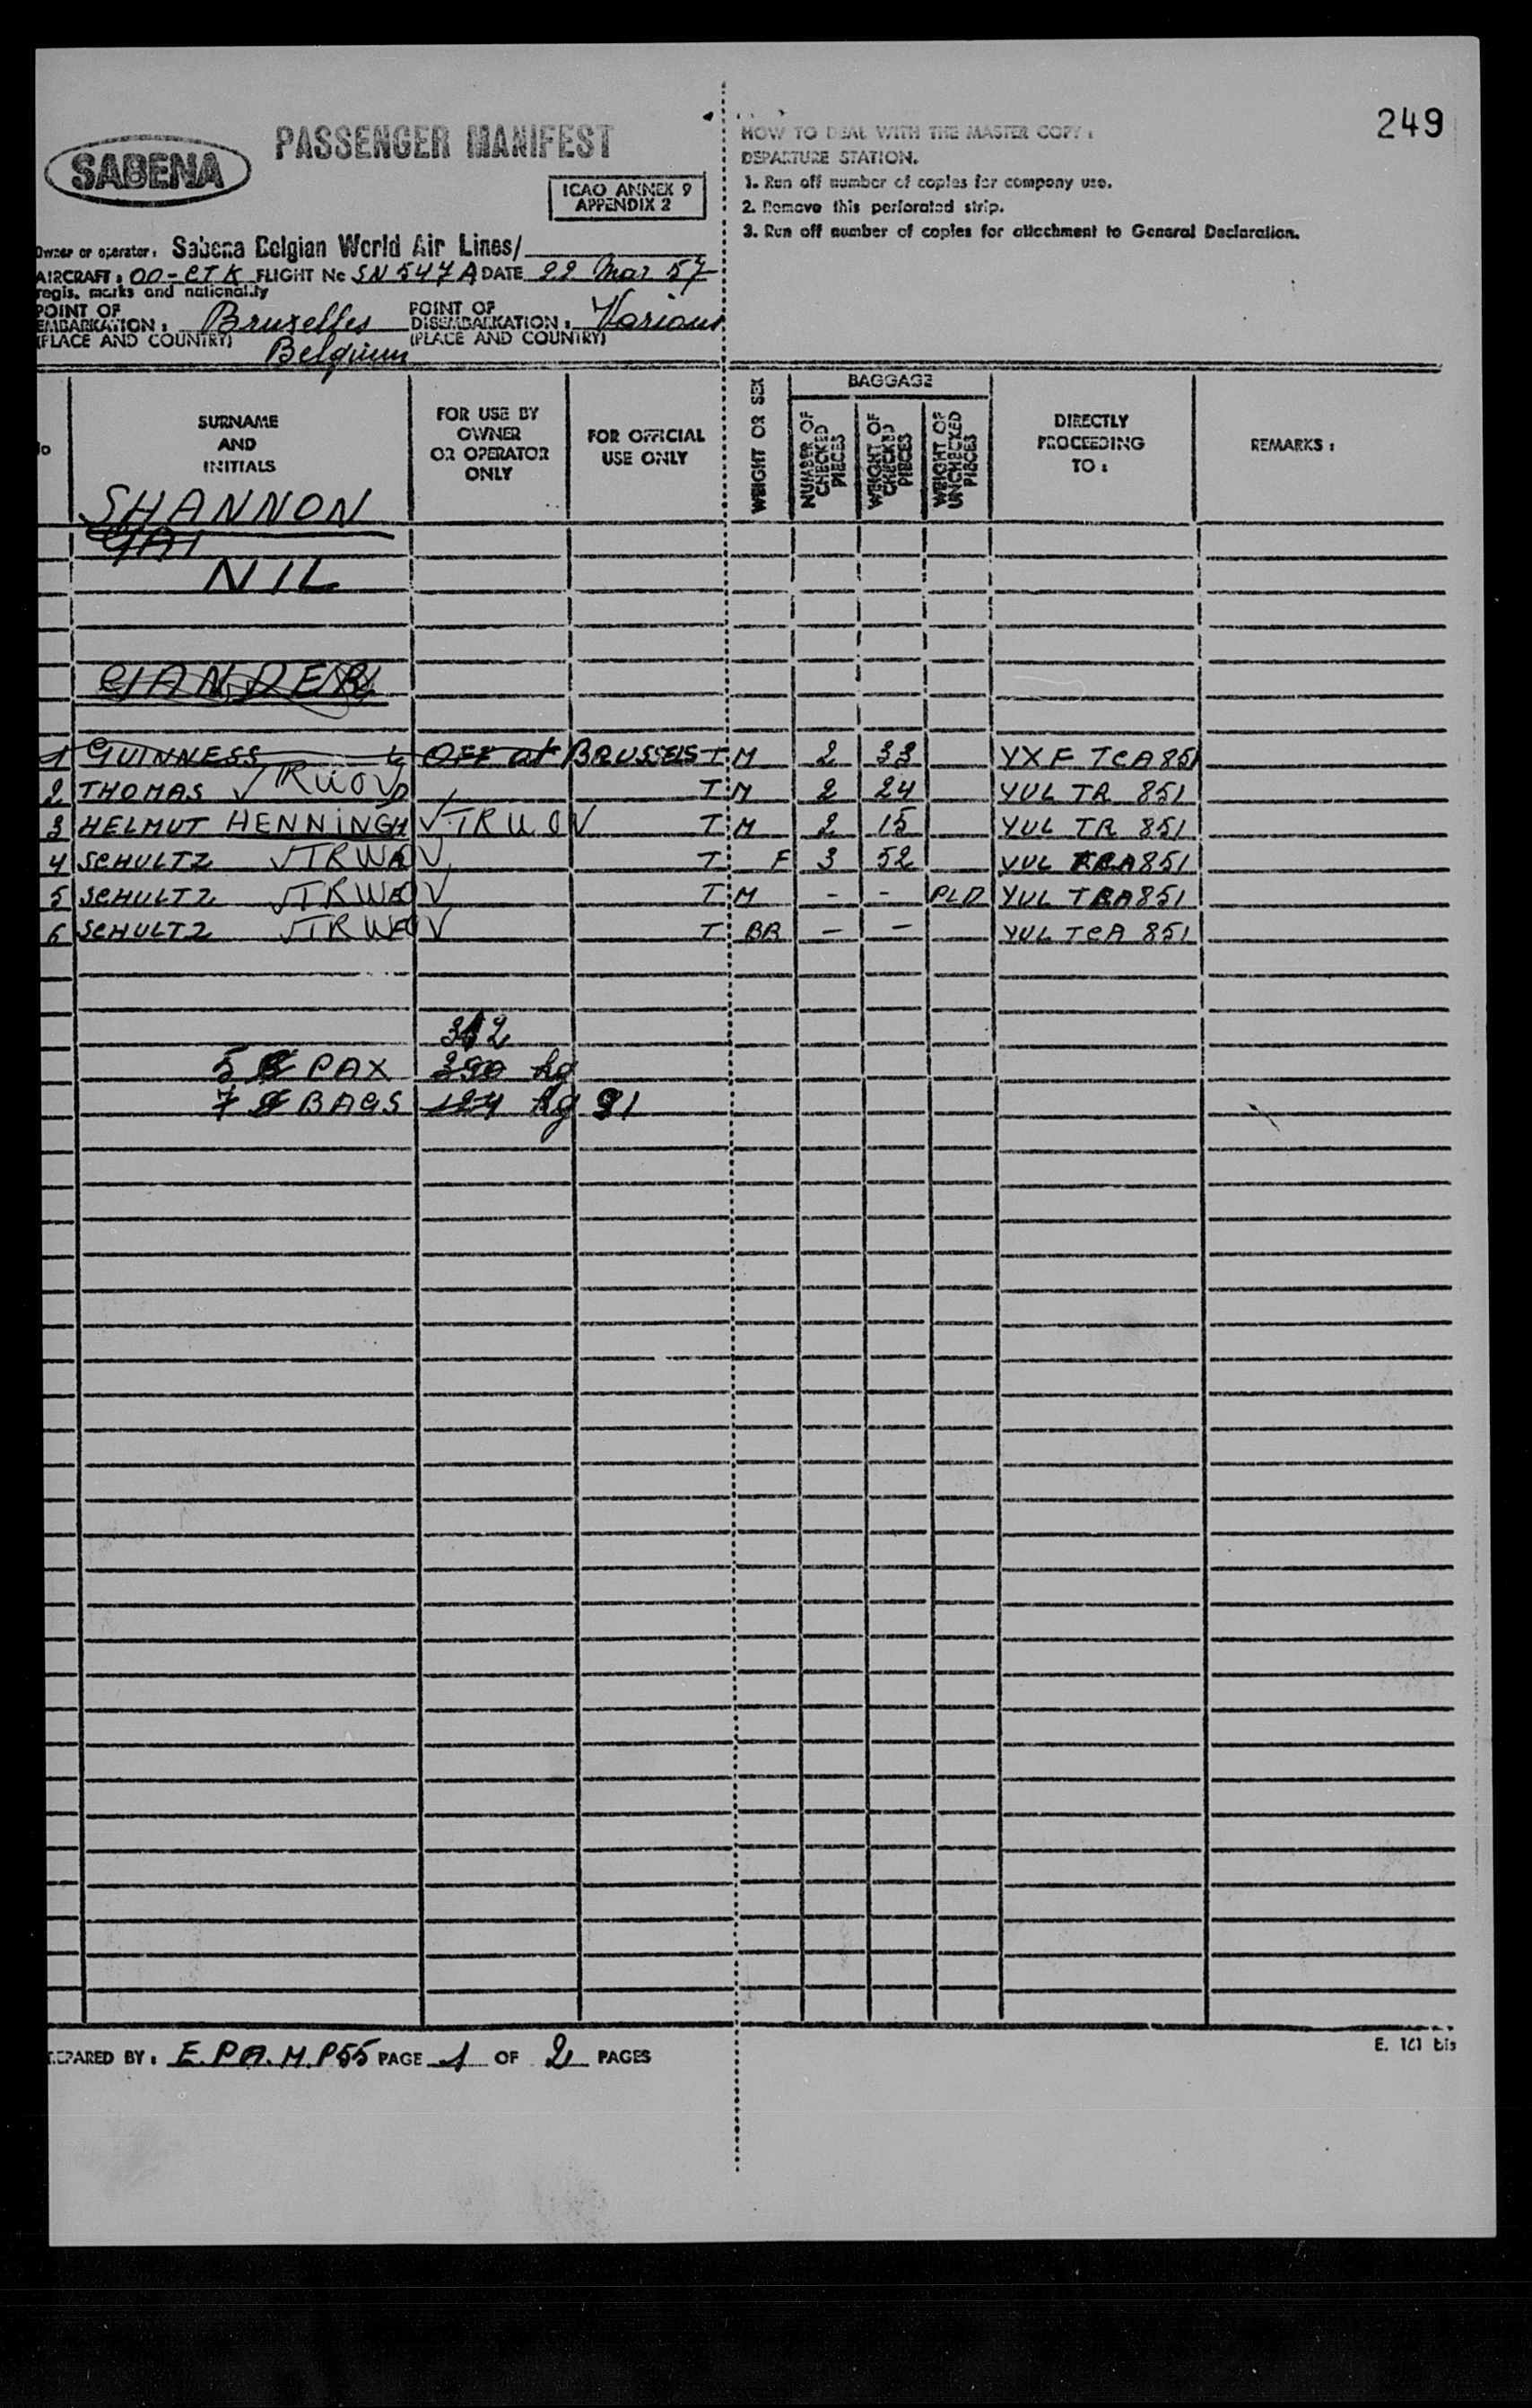 249
SABENA
PASSENGER MANIFEST
ICAO ANNEX 9
APPENDIX 2
HOW TO DEAL WITH THE MASTER COPY :
DEPARTURE STATION.
1. Run off number of copies for company use.
2. Remove this perforated strip.
3. Run off number of copies for attachment to General Declaration.
Owner or operator: Sabena Belgian World Air Lines/
AIRCRAFT: OO-CTK FLIGHT No SN 547 A DATE 22 Mar 57
regis. marks and nationality
POINT OF EMBARKATION: Bruxelles Belgium
(PLACE AND COUNTRY)
POINT OF DISEMBARKATION: Various
(PLACE AND COUNTRY)
No
SURNAME AND INITIALS
FOR USE BY OWNER OR OPERATOR ONLY
FOR OFFICIAL USE ONLY
WEIGHT OR SEX
BAGGAGE
NUMBER OF CHECKED PIECES
WEIGHT OF CHECKED PIECES
WEIGHT OF UNCHECKED PIECES
DIRECTLY PROCEEDING TO :
REMARKS :
SHANNON
NIL
GANDER
1 GUINNESS OFF at BRUSSELS T M 2 33 YXF TCA 851
2 THOMAS √ T M 2 24 YUL TR 851
3 HELMUT HENNINGH √ T M 2 15 YUL TR 851
4 SCHULTZ √ T F 3 52 YUL TCA 851
5 SCHULTZ √ T M - - PLD YUL TCA 851
6 SCHULTZ √ T BR - - YUL TCA 851
312
5 6 PAX 390 kg
7 9 BAGS 124 kg 91
PREPARED BY: E.P.A.M.P55 PAGE 1 OF 2 PAGES
E. 101 bis